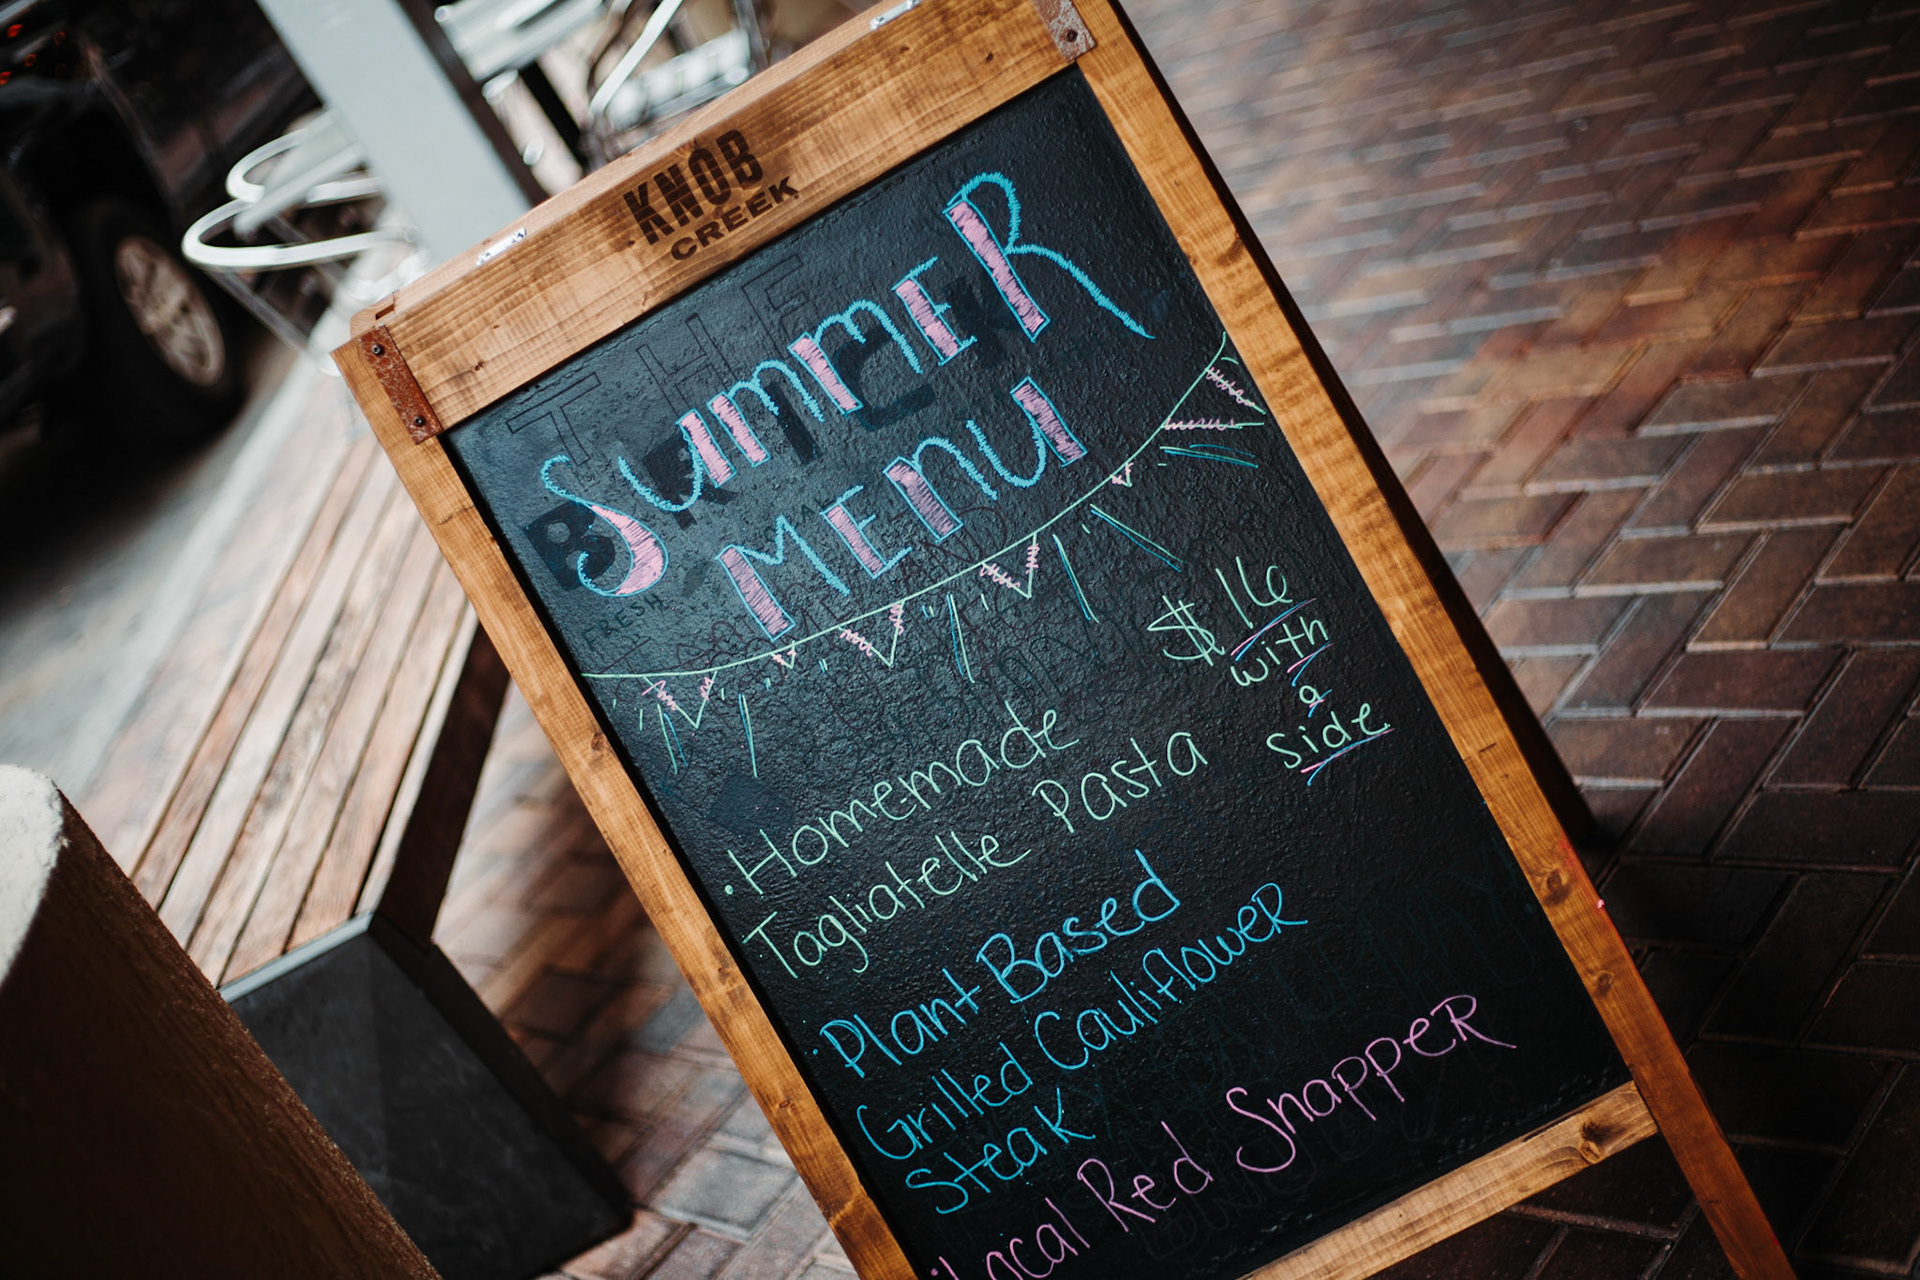 KNOB
CREEK
THE
BRICK
FRESH
SUMMER
MENU
$16
with
a
side
·Homemade
Tagliatelle Pasta
·Plant Based
Grilled Cauliflower
Steak
·Local Red Snapper